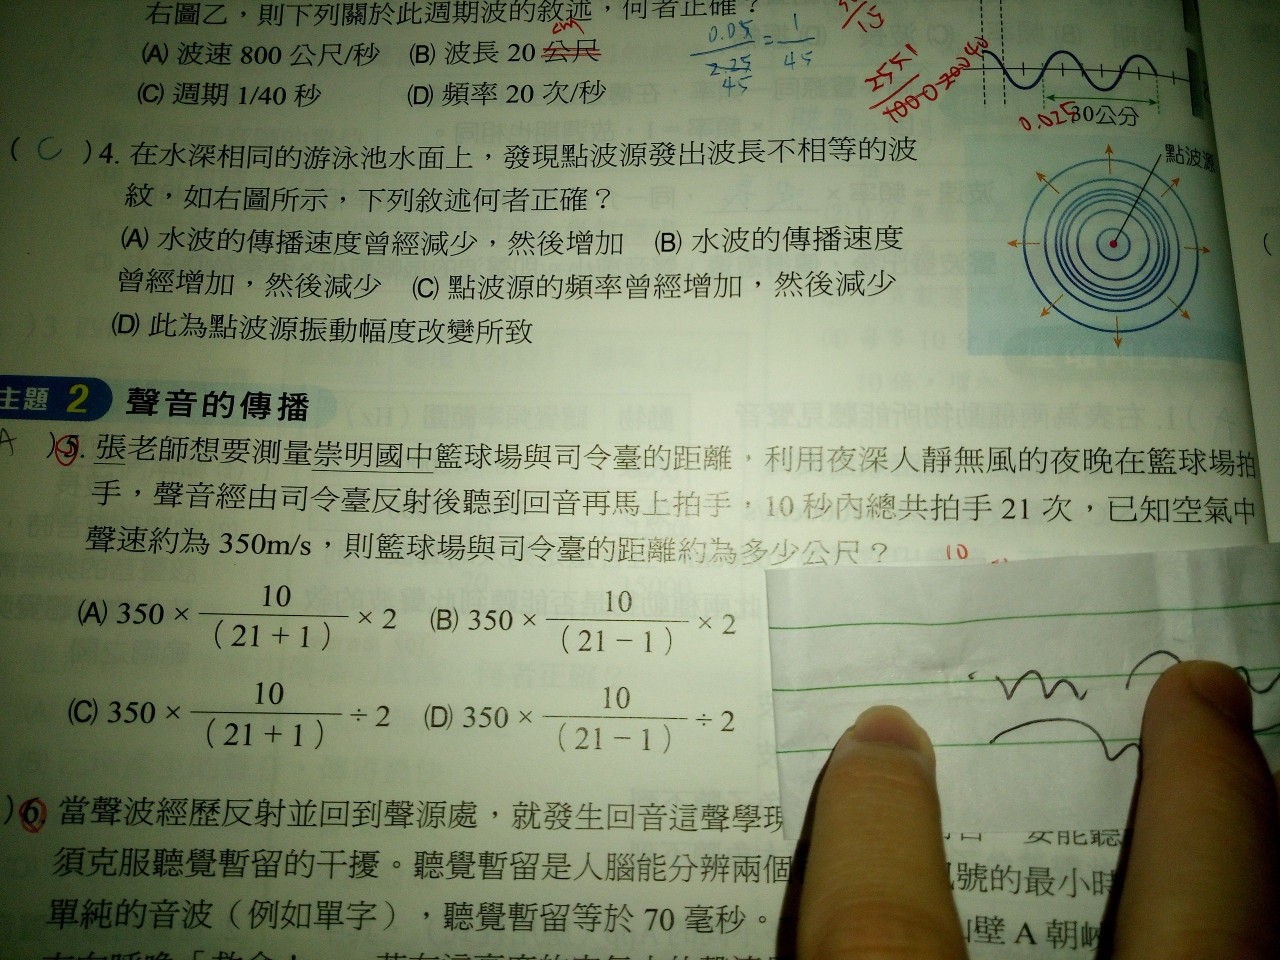 右圖乙，則下列關於此週期波的敘述，何者正確？
(A) 波速 800 公尺/秒 (B) 波長 20 公尺 cm
(C) 週期 1/40 秒 (D) 頻率 20 次/秒
0.05 / 2.25 45 = 1 / 45
0.025
30公分
( C ) 4. 在水深相同的游泳池水面上，發現點波源發出波長不相等的波
紋，如右圖所示，下列敘述何者正確？
(A) 水波的傳播速度曾經減少，然後增加 (B) 水波的傳播速度
曾經增加，然後減少 (C) 點波源的頻率曾經增加，然後減少
(D) 此為點波源振動幅度改變所致
點波源
主題 2 聲音的傳播
A ) 5. 張老師想要測量崇明國中籃球場與司令臺的距離，利用夜深人靜無風的夜晚在籃球場拍
手，聲音經由司令臺反射後聽到回音再馬上拍手，10 秒內總共拍手 21 次，已知空氣中
聲速約為 350m/s，則籃球場與司令臺的距離約為多少公尺？
10
(A) 350 × 10 / (21 + 1) × 2 (B) 350 × 10 / (21 − 1) × 2
(C) 350 × 10 / (21 + 1) ÷ 2 (D) 350 × 10 / (21 − 1) ÷ 2
) 6. 當聲波經歷反射並回到聲源處，就發生回音這聲學現
要能聽
須克服聽覺暫留的干擾。聽覺暫留是人腦能分辨兩個
號的最小時
單純的音波（例如單字），聽覺暫留等於 70 毫秒。
壁 A 朝峽